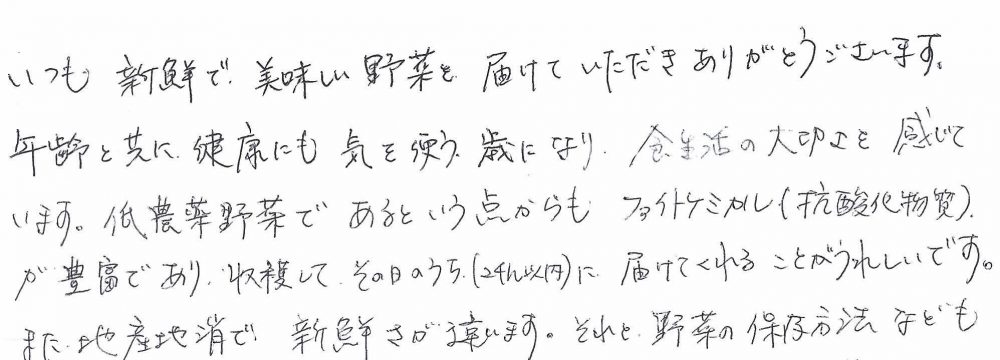 いつも 新鮮で、美味しい 野菜を 届けて いただき ありがとうございます。
年齢と共に、健康にも 気を使う 歳になり、食生活の大切さを 感じて
います。低農薬野菜で あるという点からも ファイトケミカル(抗酸化物質)
が豊富であり、収穫して、その日のうち(24h以内)に 届けてくれる ことがうれしいです。
また、地産地消で 新鮮さが違います。それと、野菜の 保存方法 なども